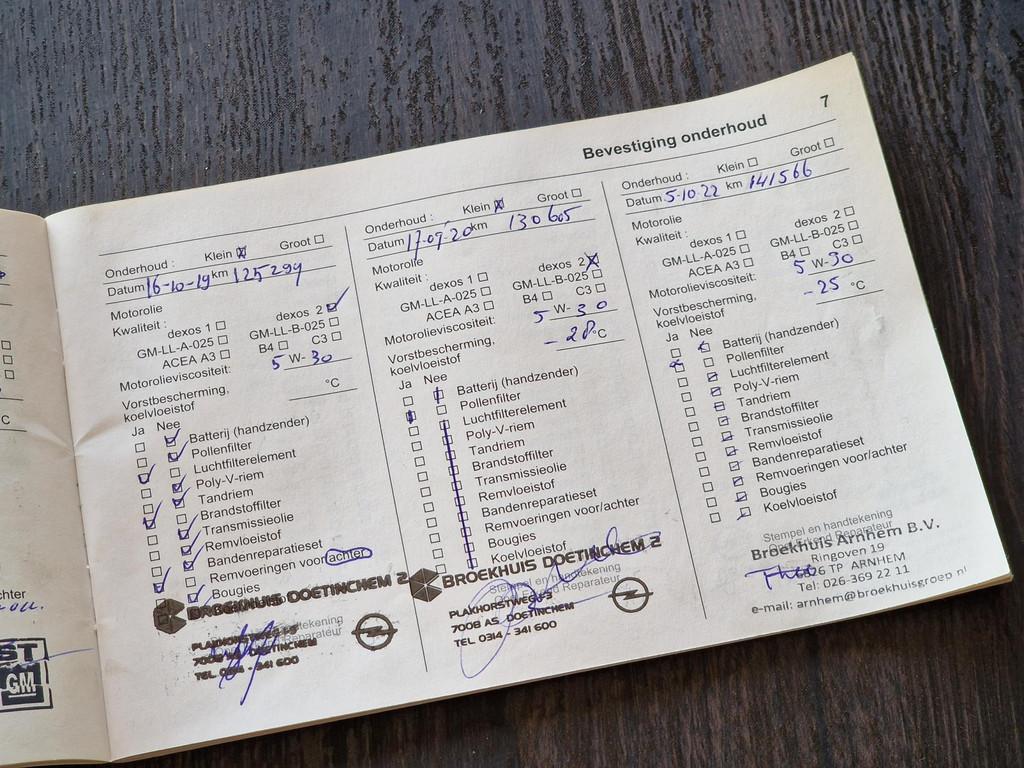 7
Bevestiging onderhoud
Onderhoud : Klein ☒ Groot ☐
Datum 16-10-19 km 125299
Motorolie
Kwaliteit : dexos 1 ☐ dexos 2 ☑
GM-LL-A-025 ☐ GM-LL-B-025 ☐
ACEA A3 ☐ B4 ☐ C3 ☐
Motorolieviscositeit: 5 W- 30
Vorstbescherming,
koelvloeistof °C
Ja Nee
Batterij (handzender)
Pollenfilter
Luchtfilterelement
Poly-V-riem
Tandriem
Brandstoffilter
Transmissieolie
Remvloeistof
Bandenreparatieset
Remvoeringen voor/achter
Bougies
BROEKHUIS DOETINCHEM 2
PLAKHORSTWEG
7008 AS DOETINCHEM
TEL. 0314 - 341 600
Onderhoud : Klein ☒ Groot ☐
Datum 17-09-20 km 130605
Motorolie
Kwaliteit : dexos 1 ☐ dexos 2 ☒
GM-LL-A-025 ☐ GM-LL-B-025 ☐
ACEA A3 ☐ B4 ☐ C3 ☐
Motorolieviscositeit: 5 W- 30
Vorstbescherming,
koelvloeistof - 28 °C
Ja Nee
Batterij (handzender)
Pollenfilter
Luchtfilterelement
Poly-V-riem
Tandriem
Brandstoffilter
Transmissieolie
Remvloeistof
Bandenreparatieset
Remvoeringen voor/achter
Bougies
Koelvloeistof
Stempel en handtekening
Opel Erkend Reparateur
BROEKHUIS DOETINCHEM 2
PLAKHORSTWEG
7008 AS DOETINCHEM
TEL 0314 - 341 600
Onderhoud : Klein ☐ Groot ☐
Datum 5-10-22 km 141566
Motorolie
Kwaliteit : dexos 1 ☐ dexos 2 ☐
GM-LL-A-025 ☐ GM-LL-B-025 ☐
ACEA A3 ☐ B4 ☐ C3 ☐
Motorolieviscositeit: 5 W-30
Vorstbescherming,
koelvloeistof - 25 °C
Ja Nee
Batterij (handzender)
Pollenfilter
Luchtfilterelement
Poly-V-riem
Tandriem
Brandstoffilter
Transmissieolie
Remvloeistof
Bandenreparatieset
Remvoeringen voor/achter
Bougies
Koelvloeistof
Stempel en handtekening
Opel Erkend Reparateur
Broekhuis Arnhem B.V.
Ringoven 19
6826 TP ARNHEM
Tel: 026-369 22 11
e-mail: arnhem@broekhuisgroep.nl
°C
chter
ST
GM